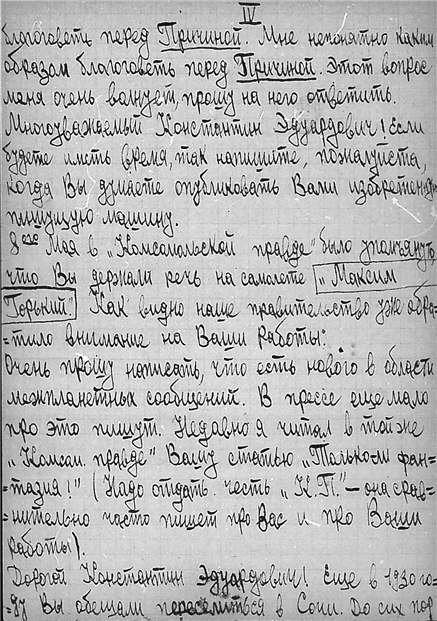 IV
благоговеть перед Причиной. Мне непонятно каким
образом благоговеть перед Причиной. Этот вопрос
меня очень волнует, прошу на него ответить.
Многоуважаемый Константин Эдуардович! Если
будете иметь время, так напишите, пожалуйста,
когда Вы думаете опубликовать Вами изобретенную
пишущую машину.
8ого Мая в „Комсомольской правде" было упомянуто,
что Вы держали речь на самолете „Максим
Горький". Как видно наше правительство уже обра-
=тило внимание на Ваши работы:
Очень прошу написать, что есть нового в области
межпланетных сообщений. В прессе еще мало
про это пишут. Недавно я читал в той же
„Комсом. правде" Вашу статью „Только ли фан-
=тазия!" (Надо отдать честь „К.П."— она срав-
=нительно часто пишет про Вас и про Ваши
работы).
Дорогой Константин Эдуардович! Еще в 1930 го-
=ду Вы обещали переселиться в Сочи. До сих пор